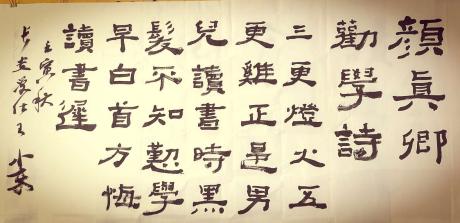 顏眞卿
勸學詩
三更燈火五
更雞正是男
兒讀書時黑
髮不知勤學
早白首方悔
讀書遲
壬寅秋